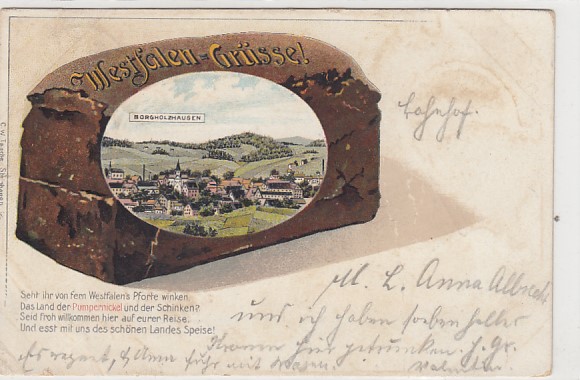 Westfalen-Grüsse!
BORGHOLZHAUSEN
Bahnhof.
Seht ihr von fern Westfalen's Pforte winken,
Das Land der Pumpernickel und der Schinken?
Seid froh willkommen hier auf eurer Reise
Und esst mit uns des schönen Landes Speise!
M. L. Anna Albrecht
und ich haben soeben
hier getrunken. h. Gr.
Es regnet, & Anna fuhr mit
Valentin